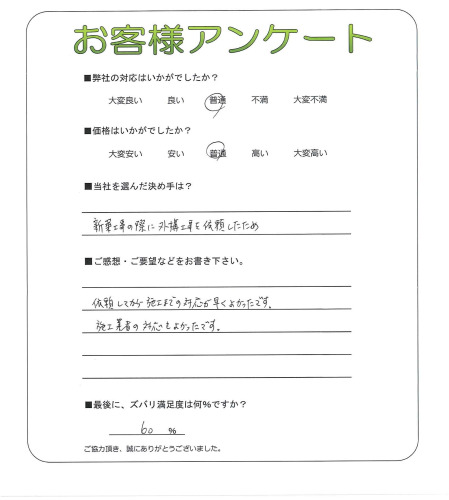 お客様アンケート
■弊社の対応はいかがでしたか？
大変良い 良い 普通 不満 大変不満
■価格はいかがでしたか？
大変安い 安い 普通 高い 大変高い
■当社を選んだ決め手は？
新築工事の際に外構工事を依頼したため
■ご感想・ご要望などをお書き下さい。
依頼してから施工までの対応が早くよかったです。
施工業者の対応もよかったです。
■最後に、ズバリ満足度は何％ですか？
60 ％
ご協力頂き、誠にありがとうございました。